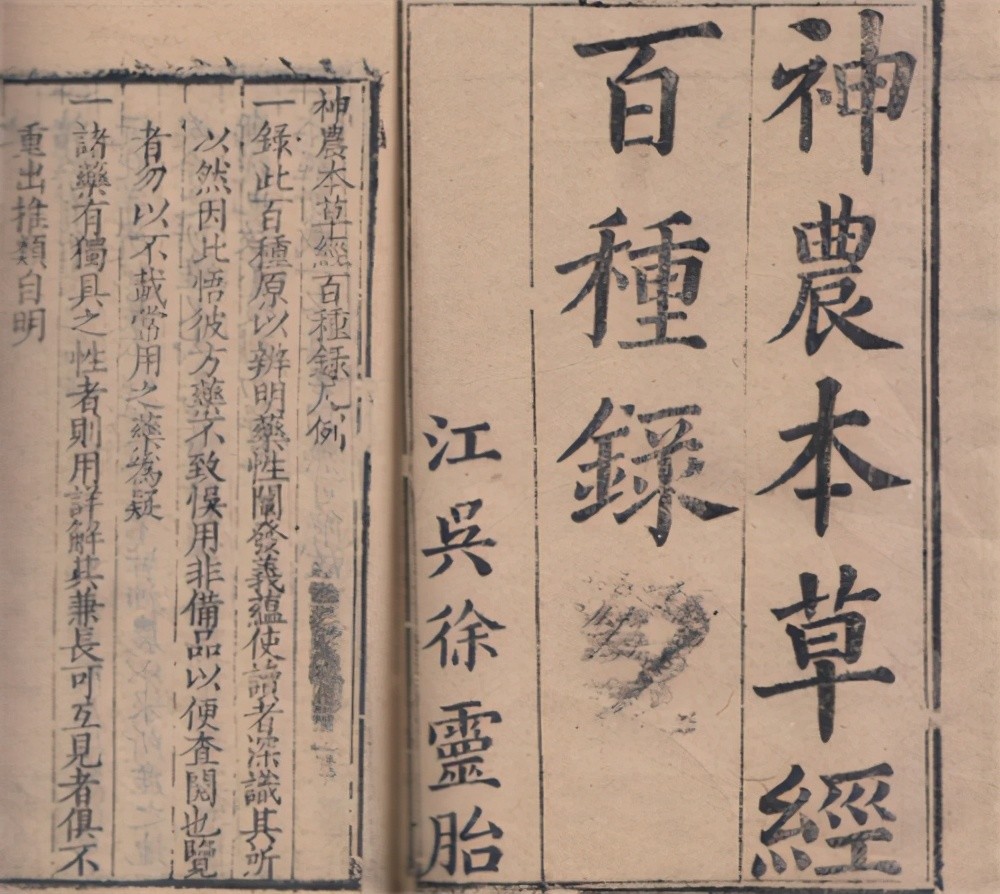 神農本草經
百種錄
江吳徐靈胎
神農本草經百種録凡例
一録此百種原以辨明藥性闡發義蘊使讀者深識其所
以然因此悟彼方藥不致悞用非備品以便查閱也覽
者勿以不載常用之藥為疑
一諸藥有獨具之性者則用詳解其兼長可互見者俱不
重出推類自明